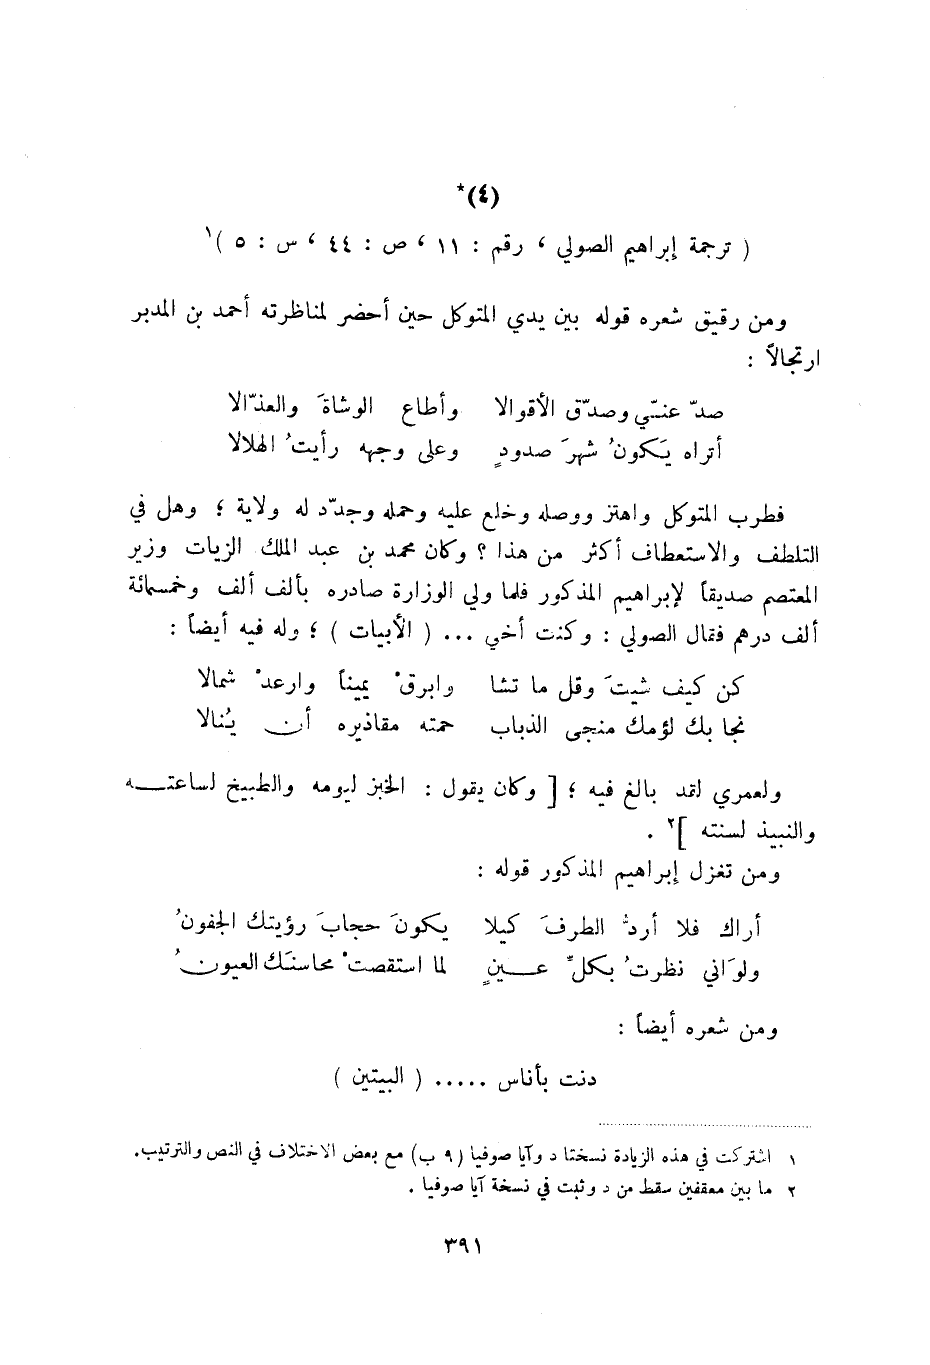 (٤)*
( ترجمة إبراهيم الصولي ، رقم : ١١ ، ص : ٤٤ ، س : ٥ )١
ومن رقيق شعره قوله بين يدي المتوكل حين أحضر لمناظرته أحمد بن المدبر
ارتجالاً :
صدّ عنّي وصدّق الأقوالا وأطاع الوشاةَ والعذّالا
أتراه يَكونُ شهرَ صدودٍ وعلى وجهه رأيتُ الهلالا
فطرب المتوكل واهتز ووصله وخلع عليه وحمله وجدّد له ولاية ؛ وهل في
التلطف والاستعطاف أكثر من هذا ؟ وكان محمد بن عبد الملك الزيات وزير
المعتصم صديقاً لإبراهيم المذكور فلما ولي الوزارة صادره بألف ألف وخمسمائة
ألف درهم فقال الصولي : وكنت أخي ... ( الأبيات ) ؛ وله فيه أيضاً :
كن كيف شيتَ وقل ما تشا وابرقْ يميناً وارعدْ شمالا
نجا بك لؤمك منجى الذباب حمته مقاذيره أن يُنالا
ولعمري لقد بالغ فيه ؛ [ وكان يقول : الخبز ليومه والطبيخ لساعته
والنبيذ لسنته ]٢ .
ومن تغزل إبراهيم المذكور قوله :
أراك فلا أردُّ الطرفَ كيلا يكونَ حجابَ رؤيتك الجفونُ
ولوَ اني نظرتُ بكلِّ عينٍ لما استقصتْ محاسنَك العيونُ
ومن شعره أيضاً :
دنت بأناس ..... ( البيتين )
١ اشتركت في هذه الزيادة نسختا د وآيا صوفيا (٩ ب) مع بعض الاختلاف في النص والترتيب.
٢ ما بين معقفين سقط من د وثبت في نسخة آيا صوفيا .
٣٩١